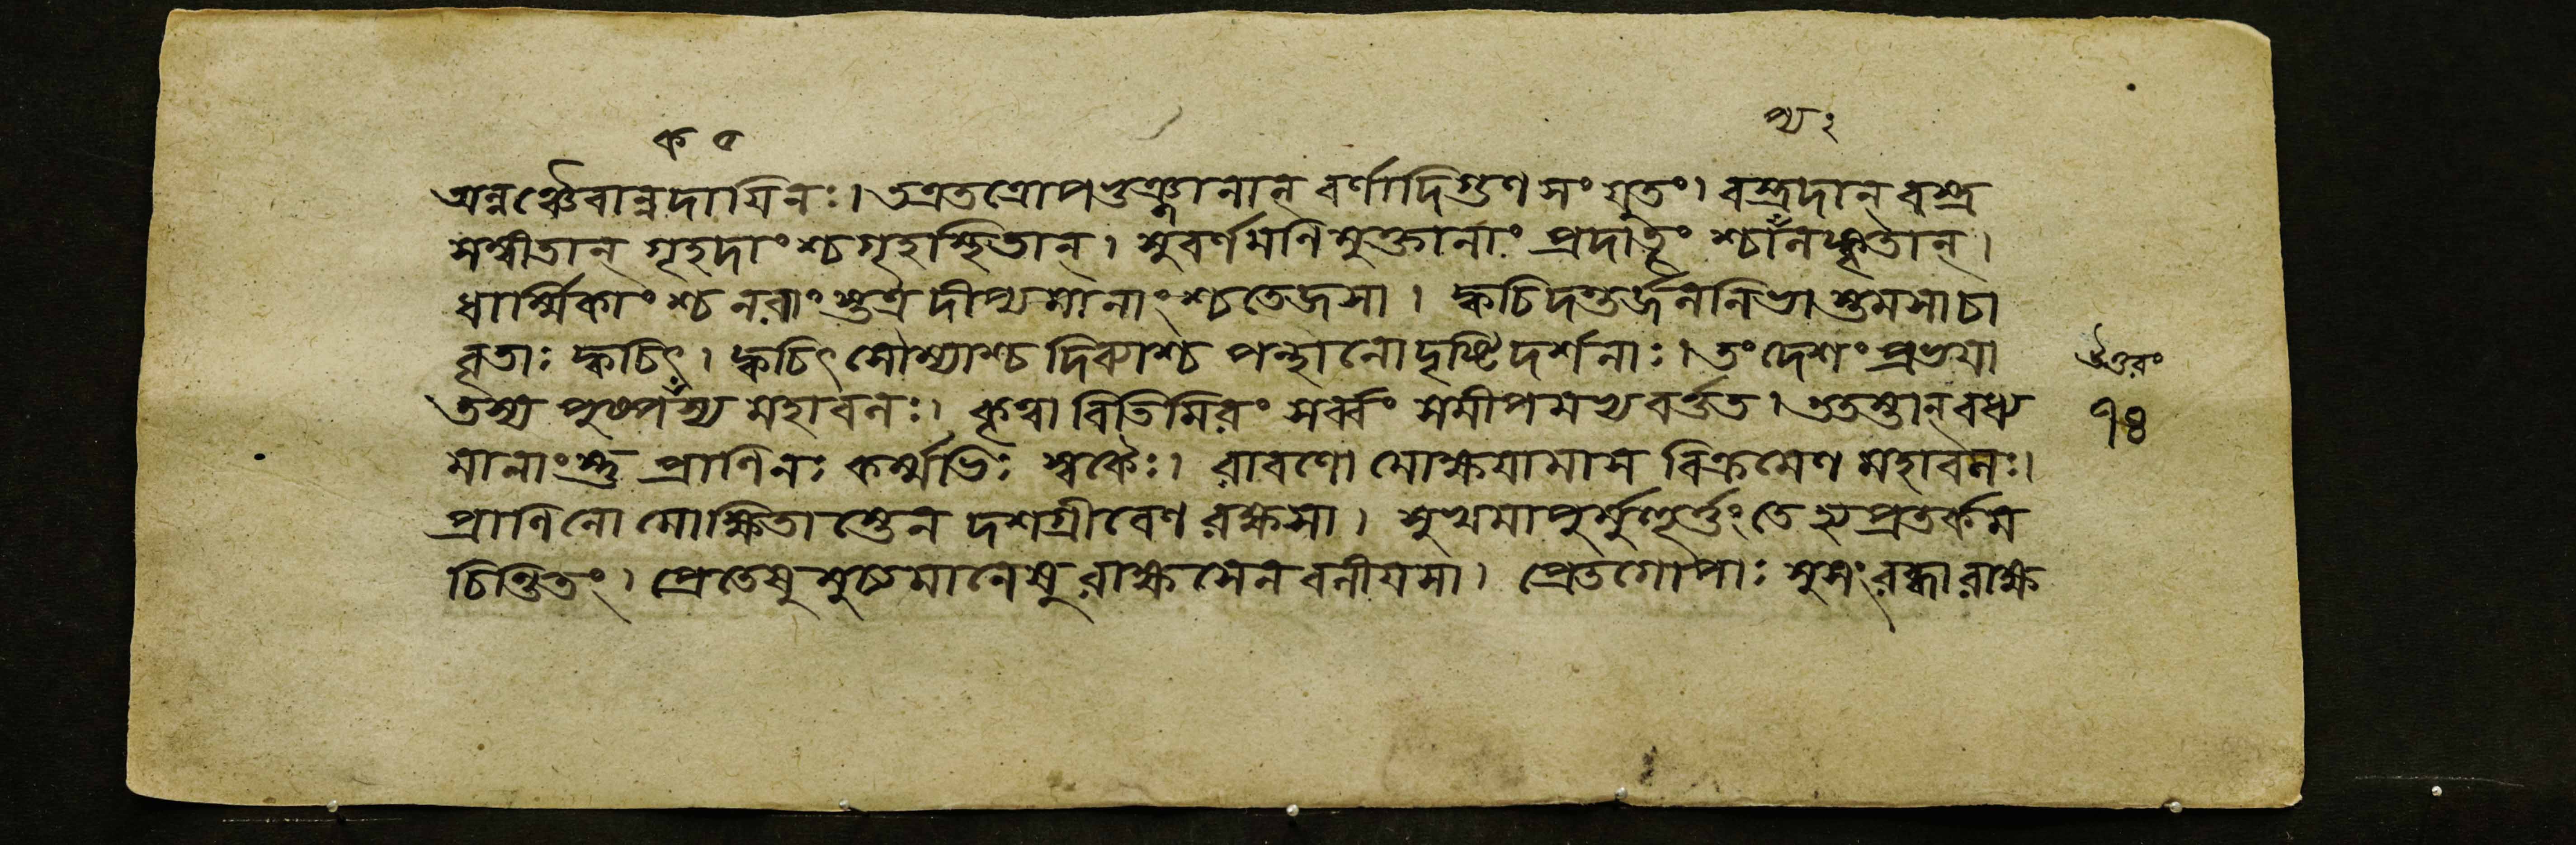 ক ০ থ্য ২
অন্নঞ্চৈবান্নদায়িনঃ। তত্রতত্রোপভুঞ্জানান্ বর্ণাদিগুণ সংযুতং। বস্ত্রদান্ বস্ত্র
সম্বীতান্ গৃহদাংশ্চ গৃহাস্থিতান্। সুবর্ণমণিমুক্তানাং প্রদাতৄংশ্চাঁনঙ্কৃতান্।
ধার্ম্মিকাংশ্চ নরাংস্তত্র দীপ্যমানাংশ্চ তেজসা। ক্বচিদন্তর্জননিভাস্তমসাচা
বৃতাঃ ক্বচিৎ। ক্বচিৎ সৌম্যাশ্চ দিব্যাশ্চ পন্থানো দৃষ্টিদর্শনাঃ। তং দেশং প্রভয়া
তস্য পুষ্পঁস্য মহাবনঃ। কৃত্বা বিতিমিরং সর্ব্বং সমীপমভ্যবর্ত্তত। ততস্তান্ বধ্য
মানাংস্তু প্রাণিনঃ কর্ম্মভিঃ স্বকৈঃ। রাবণো মোক্ষয়ামাস বিক্রমেণ মহাবনঃ।
প্রাণিনো মোক্ষিতাস্তেন দশগ্রীবেণ রক্ষসা। সুখমাপুর্মুহূর্ত্তং তেঽপ্রতর্কম
চিন্তিতং। প্রেতেষু মুচ্যমানেষু রাক্ষসেন বনীয়সা। প্রেতগোপাঃ সুসংরব্ধা রাক্ষ
উত্তরং
৭৪